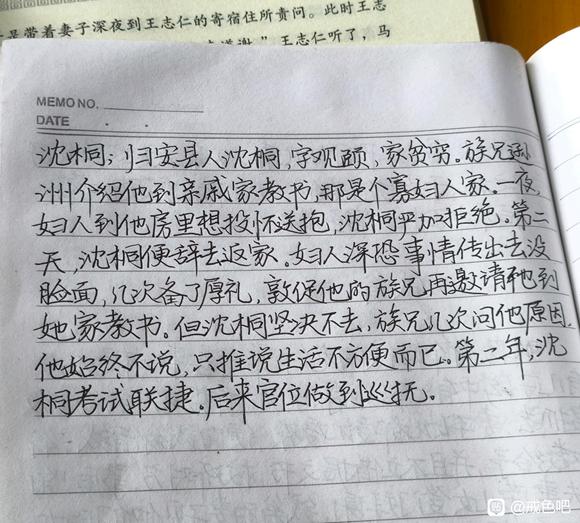 是带着妻子深夜到王志仁的寄宿住所责问。此时王志
道谢。”王志仁听了，马
MEMO NO.
DATE . .
沈桐：归安县人沈桐，字观颐，家贫穷。族兄
洲介绍他到亲戚家教书，那是个寡妇人家。一夜，
妇人到他房里想投怀送抱，沈桐严加拒绝。第二
天，沈桐便辞去返家。妇人深恐事情传出去没
脸面，几次备了厚礼，敦促他的族兄再邀请他到
她家教书。但沈桐坚决不去，族兄几次问他原因，
他始终不说，只推说生活不方便而已。第二年，沈
桐考试联捷。后来官位做到巡抚。
贴 @戒色吧